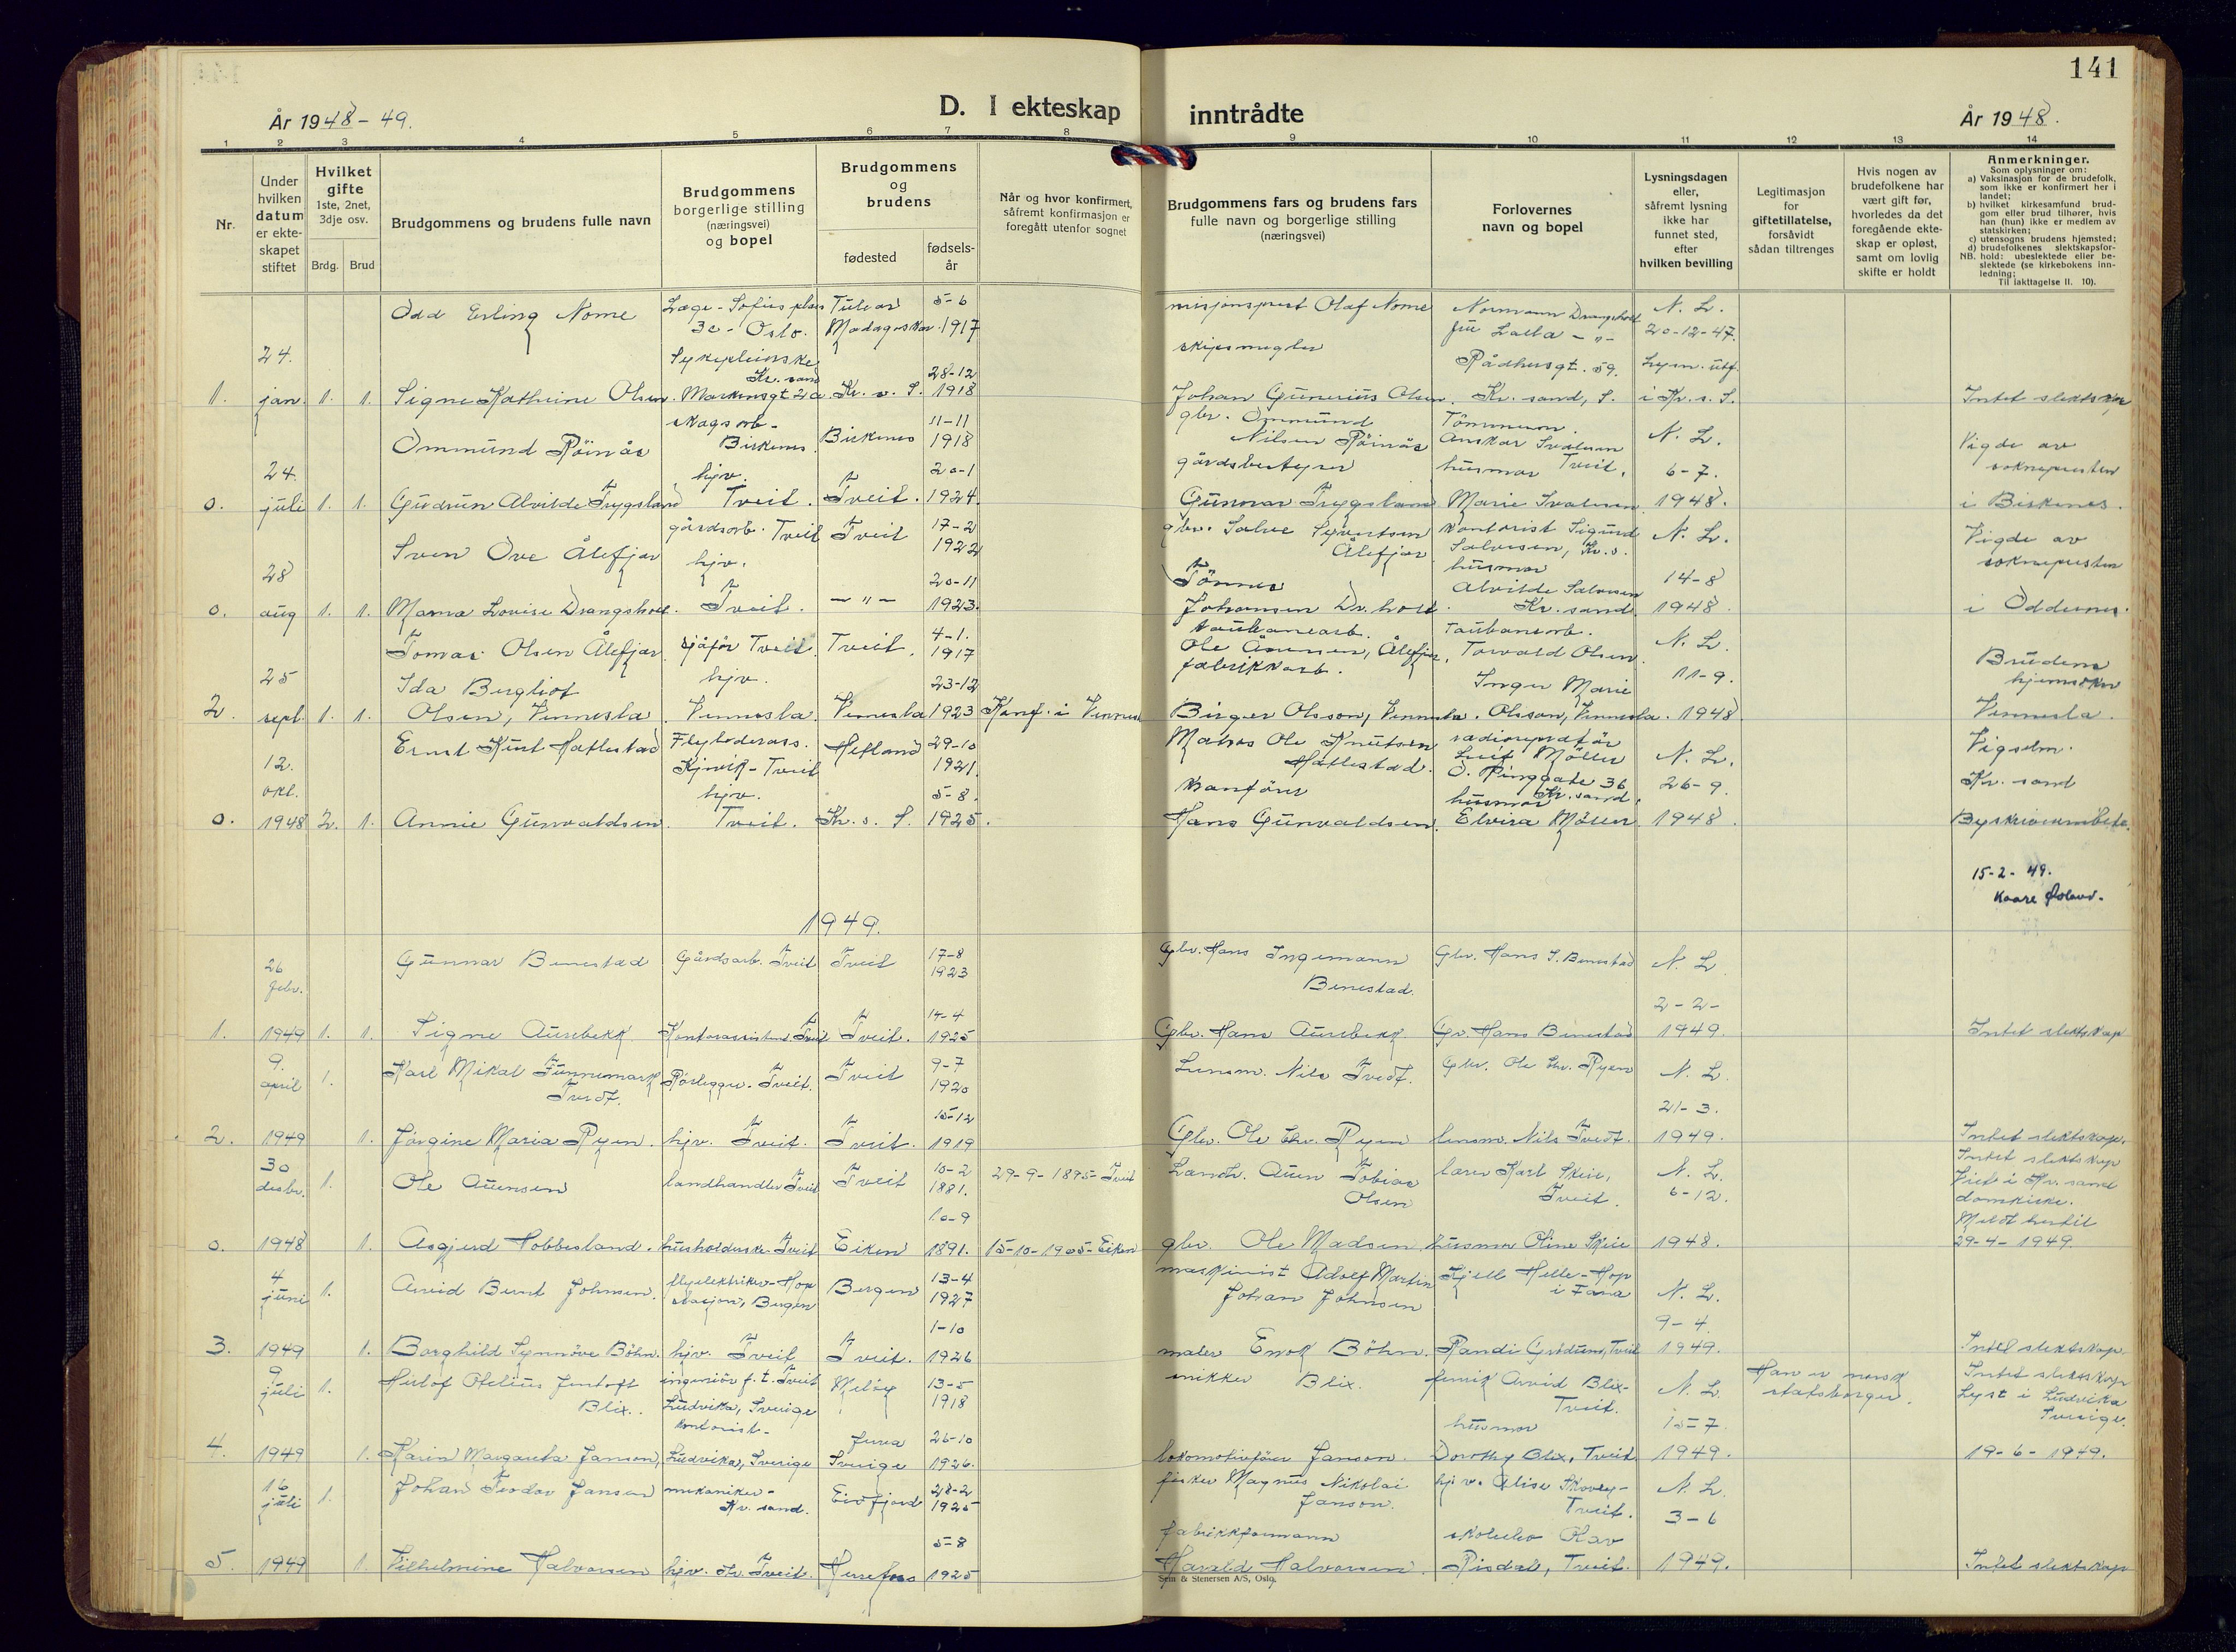 141
År 1948 - 49.
D. I ekteskap inntrådte
År 1948.
1 2 3 4 5 6 7 8 9 10 11 12 13 14
Nr.
Under hvilken datum er ekte- skapet stiftet
Hvilket gifte 1ste, 2net, 3dje osv.
Brdg. Brud
Brudgommens og brudens fulle navn
Brudgommens borgerlige stilling (næringsvei) og bopel
Brudgommens og brudens
fødested
fødsels- år
Når og hvor konfirmert, såfremt konfirmasjon er foregått utenfor sognet
Brudgommens fars og brudens fars fulle navn og borgerlige stilling (næringsvei)
Forlovernes navn og bopel
Lysningsdagen eller, såfremt lysning ikke har funnet sted, efter hvilken bevilling
Legitimasjon for giftetillatelse, forsåvidt sådan tiltrenges
Hvis nogen av brudefolkene har vært gift før, hvorledes da det foregående ekte- skap er opløst, samt om lovlig skifte er holdt
Anmerkninger.
Som oplysninger om:
a) Vaksinasjon for de brudefolk, som ikke er konfirmert her i landet;
b) hvilket kirkesamfund brud- gom eller brud tilhører, hvis han (hun) ikke er medlem av statskirken;
c) utensogns brudens hjemsted;
d) brudefolkenes slektskapsfor- hold: ubeslektede eller be- slektede (se kirkebokens inn- ledning;
NB.
Til iakttagelse II. 10).
Odd Erling Nome Læge - Sofies plass 3c - Oslo. Tulear Madagaskar 5-6 1917 misjonsprest Olaf Nome Normann Drangsholt fru Laila - " - N. L. 20-12-47.
24. jan. 1. 1. 1. Signe Kathrine Olsen Sykepleierske Kr. sand Markensgt 2a. Kr. s. S. 28-12 1918 skipsmegler Johan Gunerius Olsen. Rådhusgt. 59. Kr. sand, S. Lysn. utf. i Kr. s. S. Intet slektskap
Ommund Röinås skogsarb - Birkenes Birkenes 11-11 1918 gbr. Ommund Nilsen Röinås Tömmerm. Anskar Ivalesen N. L. Vigde av
0. 24. juli 1. 1. Gudrun Alvilde Trygsland hjv. Tveit. Tveit. 20-1 1924. gårdsbestyrer Gunnar Trygsland husmor Tveit. Marie 6-7. 1948. soknepresten i Birkenes.
Sven Ove Ålefjær gårdsarb. Tveit Tveit 17-2 1922 gbr. Salve Syvertsen Ålefjær kontorist Sigurd Salvesen, Kr. s. N. L. Vigde av soknepresten
0. 28 aug 1. 1. Marna Lovise Drangsholt. hjv. Tveit. - " - 20-11 1923. Tönnes Johansen Dr. holt. husmor Alvilde Salvesen Kr. sand 14-8 1948. i Oddernes.
Tomas Olsen Ålefjær sjåför Tveit. Tveit. 4-1. 1917 taubanearb. Ole Ålefjær, Taubanearb. Torvald Olsen. N. L. Brudens hjemsokn
2. 25 sept. 1. 1. Ida Bergliot Olsen, Vennesla hjv. Vennesla. Vennesla 23-12 1923 Konf. i Vennesla fabrikkarb. Birger Olsson, Vennesla. Inger Marie Olsson, Vennesla. 11-9. 1948. Vennesla.
Ernst Kurt Hatlestad Flylederass. Kjevik - Tveit Hetland 29-10 1921. Matros Ole Knutsen Hatlestad. radioreparatör Leif Möller Ö. Ringgate 36 Kr. sand. N. L. Vigselm. Kr. sand
0. 12. okt. 1948 2. 1. Annie Gunvaldsen hjv. Tveit. Kr. s. S. 5-8. 1925. Vanförer Hans Gunvaldsen. husmor Elvira Möller 26-9. 1948. Byskriverembete.
15-2- 49.
Kaare
1949.
26 febr. Gunnar Benestad Gårdsarb. Tveit Tveit 17-8 1923 Gbr. Hans Ingemann Benestad. Gbr. Hans I. Benestad N. L.
1. 1949 1. 1. Signe Aurebekk Kontorassistent Tveit Tveit. 14-4 1925 Gbr. Hans Aurebekk Gr. Hans Benestad 2-2- 1949. Intet slektskap
9. april 1. Karl Mikal Tunnemark Tvedt. Rörlegger. Tveit. Tveit 9-7 1920 Lensm. Nils Tvedt. Gbr. Ole Chr. Ryen N. L.
2. 1949 1. Jörgine Maria Ryen. hjv. Tveit. Tveit. 15-12 1919 Gbr. Ole Chr. Ryen lensm. Nils Tvedt. 21-3. 1949. Intet slektskap.
30 desbr. 1. Ole Auensen landhandler Tveit Tveit 10-2 1881. 29-9-1895-Tveit Landh. Auen Tobias Olsen lærer Karl Skeie, Tveit. N. L. 6-12. Intet slektskap Viet i Kr. sand domkirke.
0. 1948 1. Asgjerd Hobbesland. husholderske. Tveit Eiken 10-9 1891. 15-10-1905-Eiken gbr. Ole Madsen husmor Oline Skeie 1948. Meldt hertil 29-4-1949.
4 juni 1. Arvid Bernt Johnsen. flyelektriker - Hop stasjon, Bergen Bergen 13-4 1927 maskinist Adolf Martin Johan Johnsen Kjell Helle - Hop i Fana N. L.
3. 1949 1. Borghild Synnöve Böhn. hjv. Tveit Tveit. 1-10 1926 maler Enok Böhn. Randi Tveit 9-4. 1949. Intet slektskap
9 juli 1. Herlof Ofelius Jentoft Blix. ingeniör f. t. Tveit Ludvika, Sverige Melöy 13-5 1918 snikker Blix. fenrik Arvid Blix - Tveit. N. L. Han er norsk statsborger. Intet slektskap Lyst i Ludvika Sverige.
4. 1949 1. Karin Margareta Janson, kontorist - Ludvika, Sverige Sverige 26-10 1926. lokomotivförer Janson. husmor Dorothy Blix, Tveit 15-7 1949. 19-6-1949.
16 juli 1. Johan Teodor Jansen mekaniker - Kr. sand. Eivfjord 28-2 1925 fisker Magnus Nikolai Janson. hjv. Alise - Tveit. N. L.
5. 1949 1. Vilhelmine Halvorsen hjv. Tveit. Herefoss 5-8 1925 fabrikkformann Harald Halvorsen. Olav Risdal, Tveit. 3-6 1949. Intet slektskap
Sem & Stenersen A/S, Oslo.